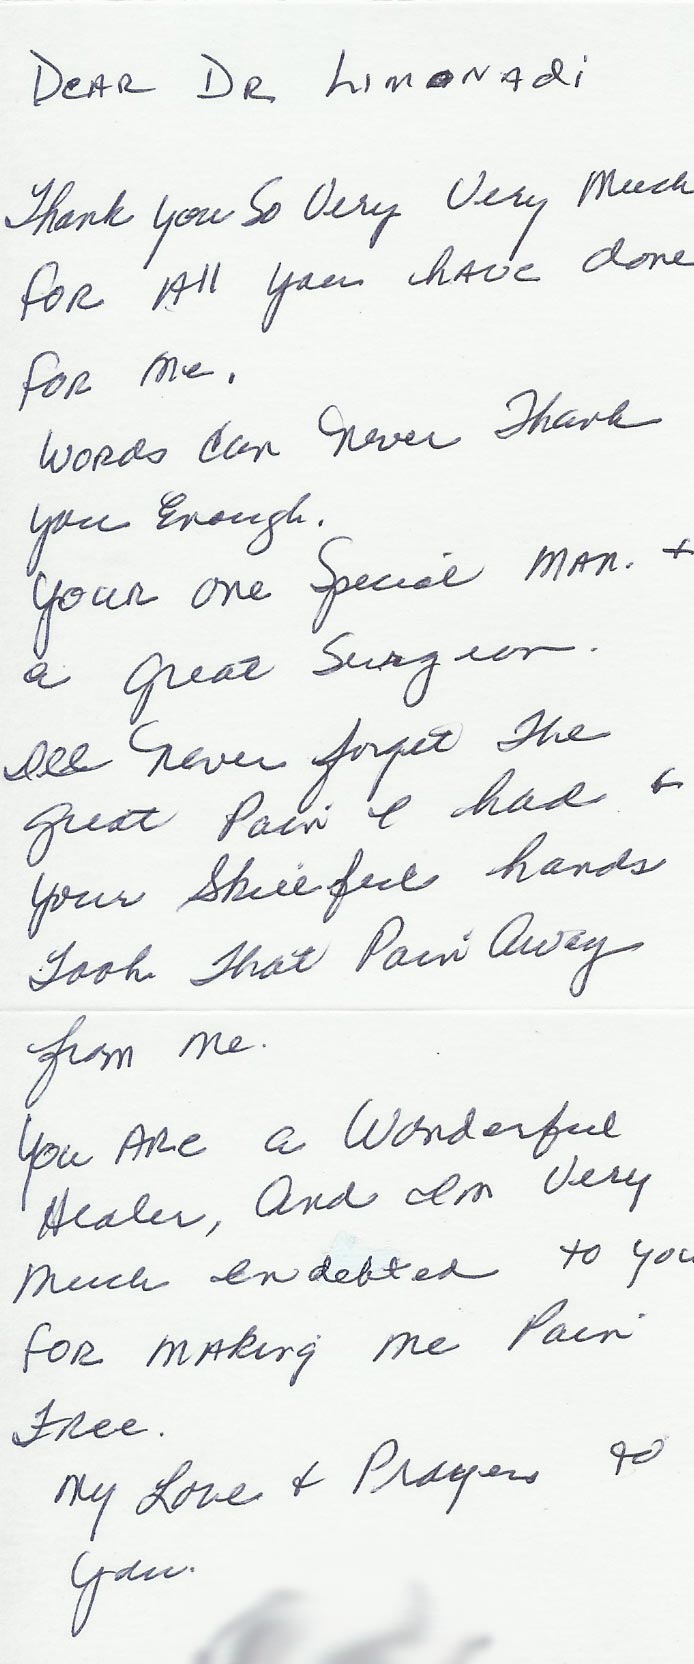 Dear Dr Limonadi
Thank you So Very Very Much
for All you have done
for me.
Words Can Never Thank
you Enough.
Your one Special MAN. +
a great Surgeon.
Ill Never forget The
great Pain I had &
your Skillful hands
Took That Pain Away
from me.
You Are a Wonderful
Healer, And I'm Very
Much Endebted to you
for making me Pain
Free.
My Love + Prayers to
you.